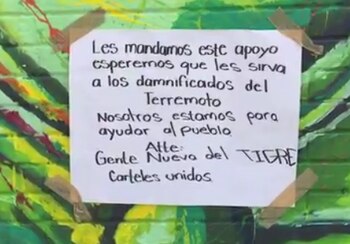 Les mandamos este apoyo
esperemos que les sirva
a los damnificados del
Terremoto
Nosotros estamos para
ayudar al pueblo
Atte:
Gente Nueva del TIGRE
Carteles unidos